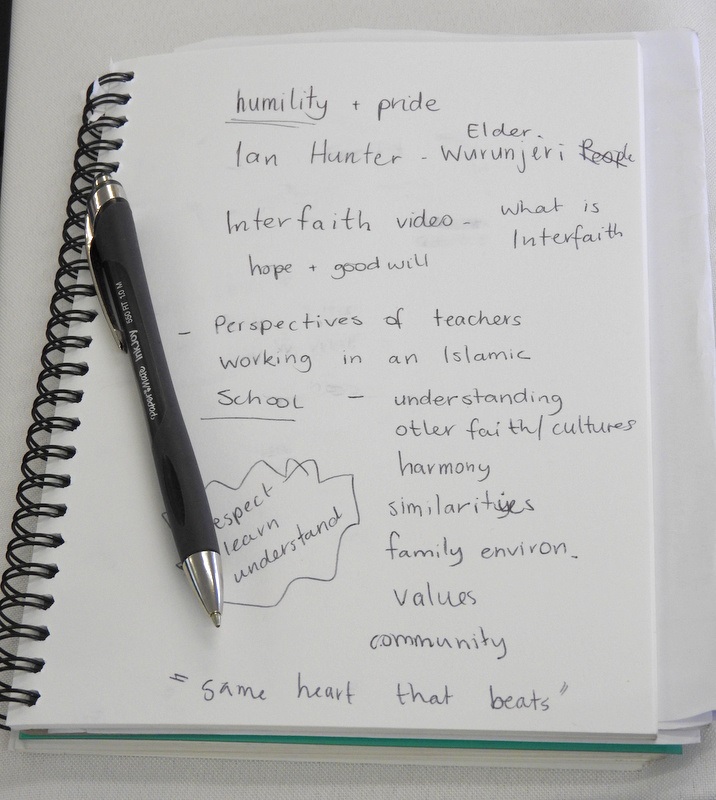 humility + pride
Elder.
Ian Hunter - Wurunjeri People
Interfaith video - what is
Interfaith
hope + good will
- Perspectives of teachers
working in an Islamic
School - understanding
otler faith/cultures
harmony
similarities
family environ.
values
community
espect
learn
understand
"same heart that beats"
paper mate InkJoy 550 RT 1.0 M